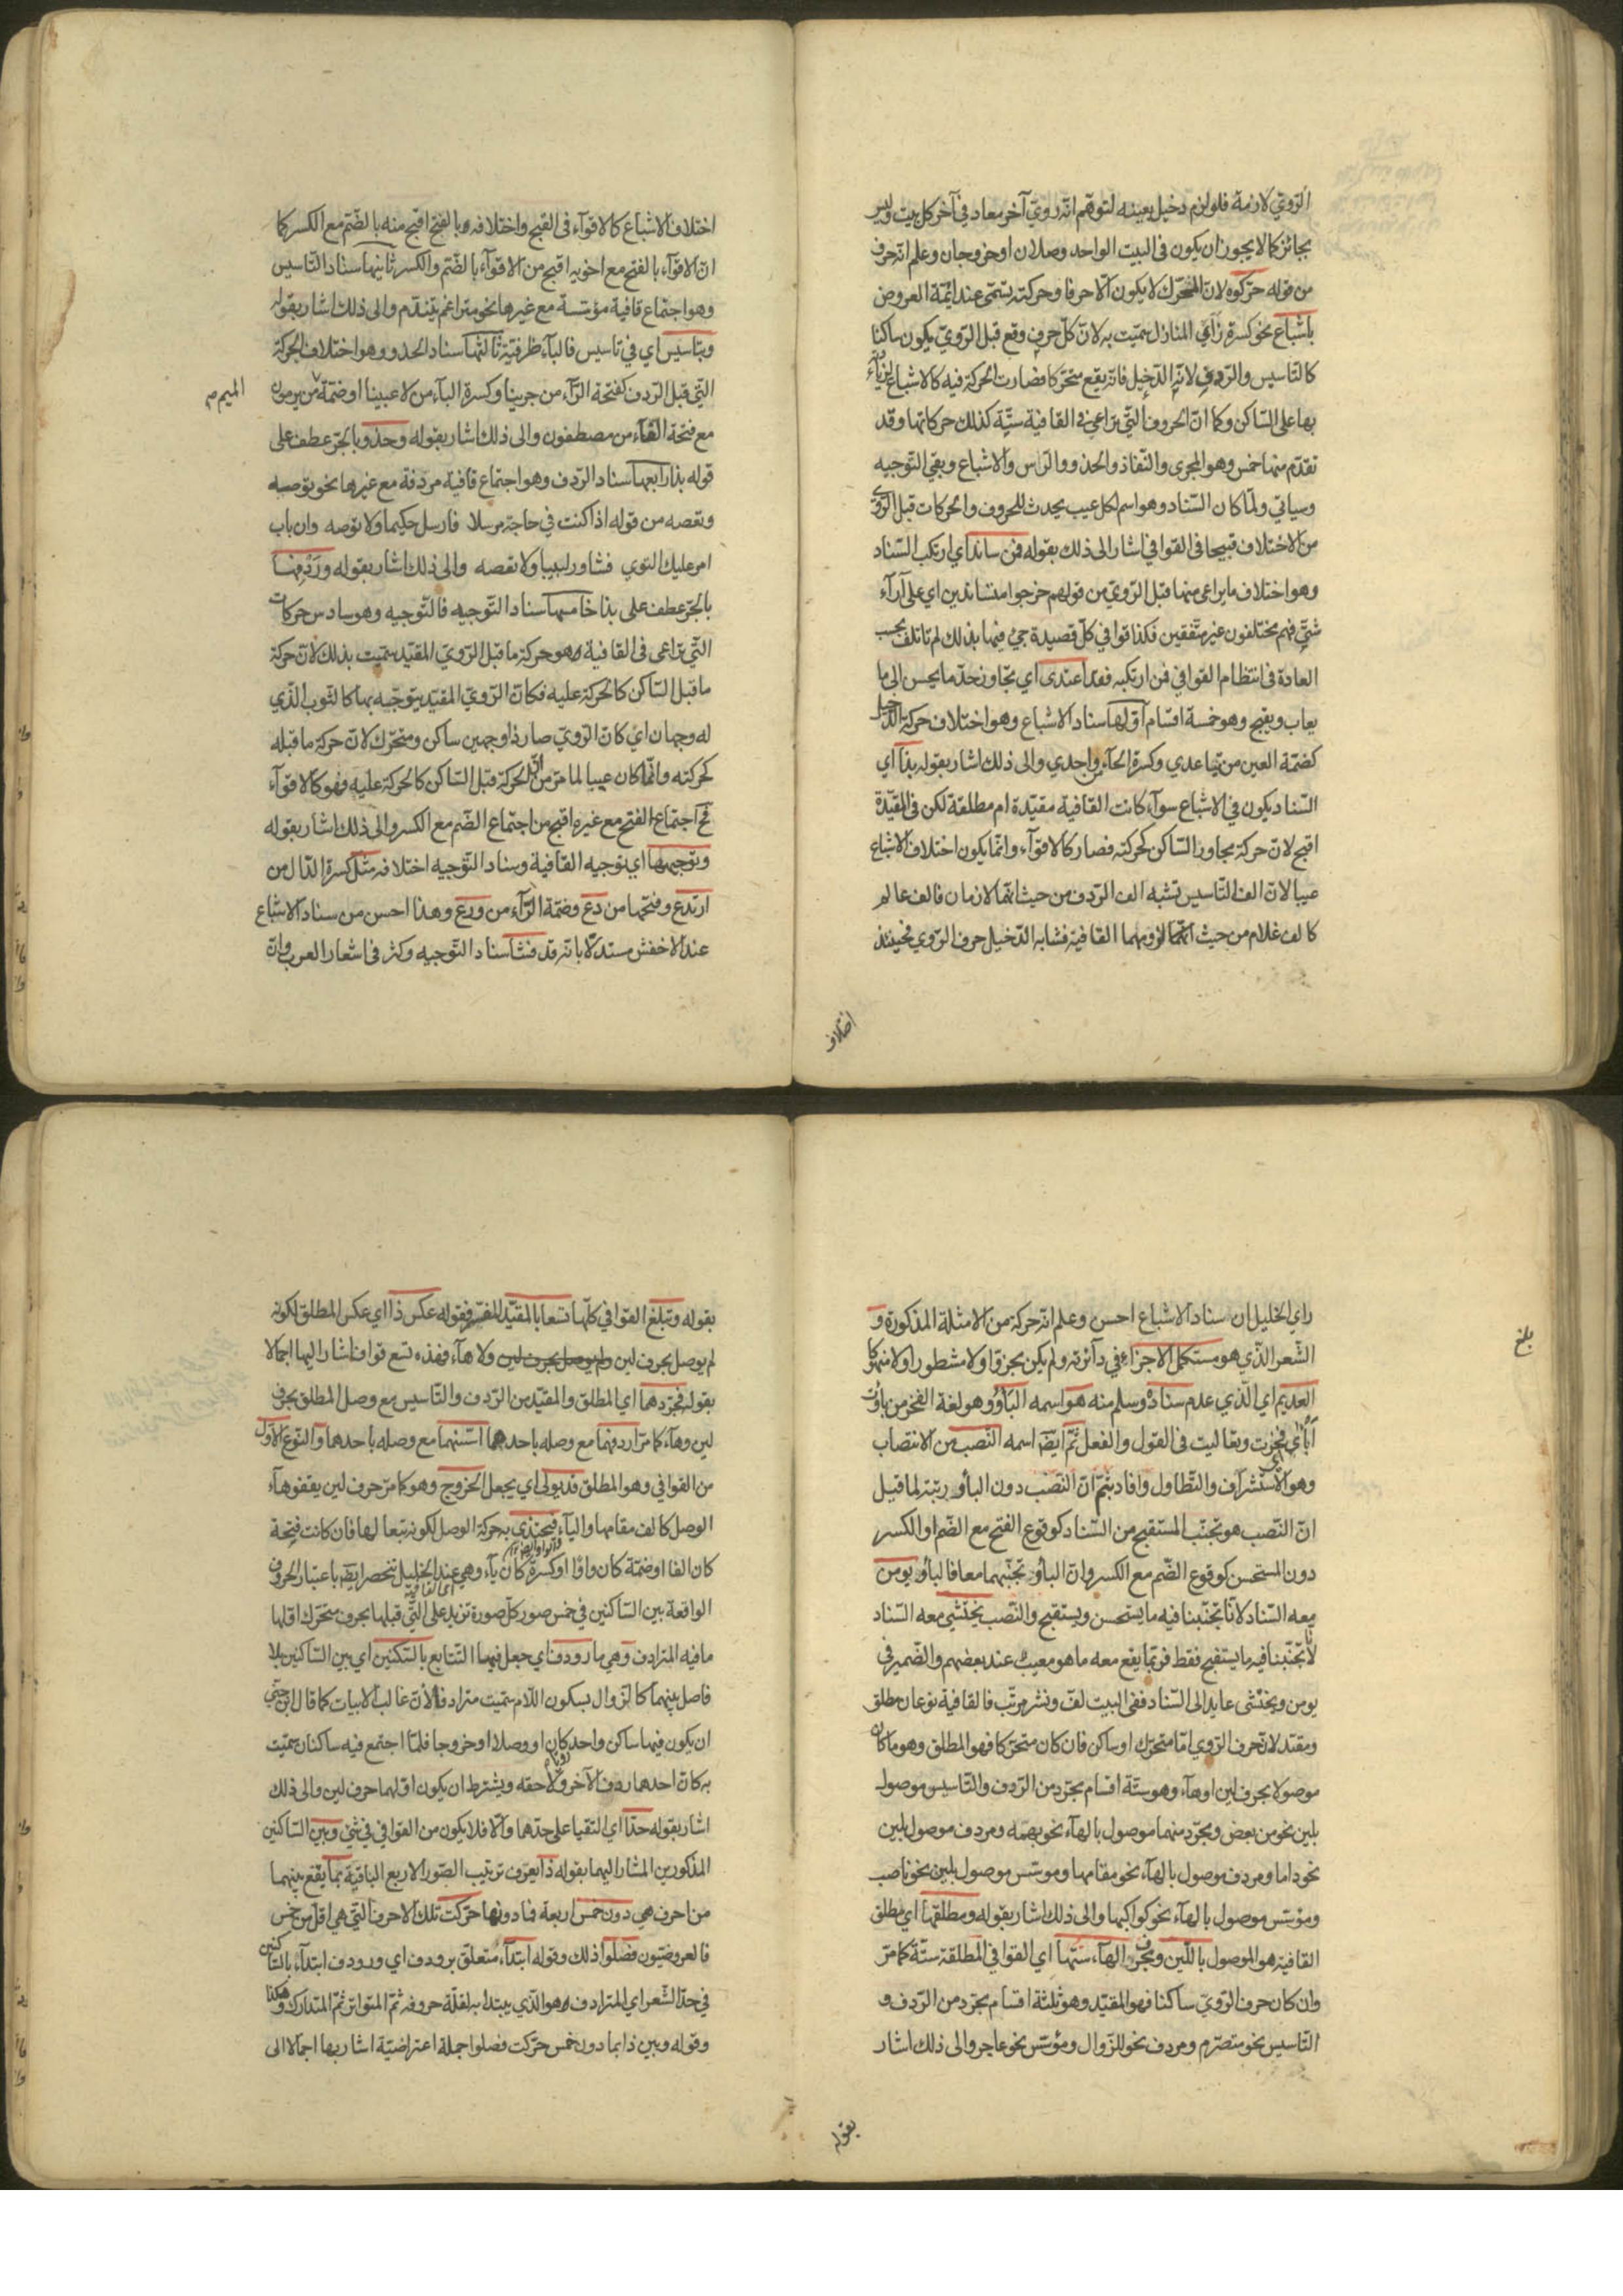 الرويّ لازمة فلو لزم دخيل بعينه لتوهم انّه رويّ آخر معاد في آخر كل بيت وليس
بجائز كما لا يجوز ان يكون فى البيت الواحد وصلان او خروجان وعلم انّه حرف
من قوله حرّكوه لانّ المتحرّك لا يكون الّا حرفا وحركته تسمّى عند ائمّة العروض
باشباع نحو كسرة زاى المنازل سمّيت به لانّ كلّ حرف وقع قبل الرّويّ يكون ساكنا
كالتاسيس والرّدف الّا الدّخيل فانّه يقع متحرّكا فصارت الحركة فيه كالاشباع لزيادته
بها على السّاكن وكما انّ الحروف الّتي تراعي في القافية ستّة كذلك حركاتها وقد
تقدّم منها خمس وهو المجرى والنّفاذ والحذو والرّاس والاشباع وبقي التّوجيه
وسياتي ولمّا كان السّناد وهو اسم لكل عيب يحدث للحروف والحركات قبل الرّويّ
من الاختلاف قبيحا فى القوافي اشار الى ذلك بقوله فمن ساند اي ارتكب السّناد
وهو اختلاف ما يراعى منها قبل الرّويّ من قولهم خرجوا متساندين اي على آرآء
شتّى فهم مختلفون غير متّفقين فكذا قوافي كلّ قصيدة جئ فيها بذلك لم تاتلف بحسب
العادة فى انتظام القوافي فمن ارتكبه فقد اعتدى اي تجاوز حدّ ما يحسن الى ما
يعاب ويقبح وهو خمسة اقسام اوّلها سناد الاشباع وهو اختلاف حركة الدّخيل
كضمّة العين من تباعدي وكسرة الحآء من واحدي والى ذلك اشار بقوله بذا اي
السّناد يكون في الاشباع سوآء كانت القافية مقيّدة ام مطلقة لكن فى المقيّدة
اقبح لانّ حركة مجاور السّاكن كحركته فصار كالاقوآء وانّما يكون اختلاف الاشباع
عيبا لانّ الف التّاسيس تشبه الف الرّدف من حيث انّهما لازمان فالف عالم
كالف غلام من حيث لزومهما القافية فشابه الدّخيل حرف الرّوي فحينئذ
اختلاف
اختلاف الاشباع كالاقوآء فى القبح واختلافه وبالفتح اقبح منه بالضّم مع الكسر كما
انّ الاقوآء بالفتح مع اخويه اقبح من الاقوآء بالضّم والكسر ثانيها سناد التّاسيس
وهو اجتماع قافية مؤسّسة مع غيرها نحو متراغم بتندّم والى ذلك اشار بقوله
وبتاسيس اي في تاسيس فالبآء ظرفيّة ثالثها سناد الحذو وهو اختلاف الحركة
التّي قبل الرّدف كفتحة الرّآء من جرينا وكسرة البآء من لاعبينا او ضمّة من يرمون
الميم م
مع فتحة الفآء من مصطفون والى ذلك اشار بقوله وحذو بالجرّ عطف على
قوله بذا رابعها سناد الرّدف وهو اجتماع قافية مردفة مع غيرها نحو توصه
وتعصه من قوله اذا كنت في حاجة مرسلا فارسل حكيما ولا توصه وان باب
امر عليك التوي فشاور لبيبا ولا تعصه والى ذلك اشار بقوله وردفها
بالجرّ عطف على بذا خامسها سناد التّوجيه فالتّوجيه وهو سادس حركات
التّي تراعى فى القافية وهو حركة ما قبل الرّويّ المقيّد سمّيت بذلك لانّ حركة
ما قبل السّاكن كالحركة عليه فكانّ الرّويّ المقيّد يتوجّه بها كالثوب الّذي
له وجهان اي كانّ الرّويّ صار ذا وجهين ساكن ومتحرّك لانّ حركة ما قبله
كحركته وانّما كان عيبا لما مرّ من انّ الحركة قبل السّاكن كالحركة عليه فهو كالاقوآء
فح اجتماع الفتح مع غيره اقبح من اجتماع الضّم مع الكسر والى ذلك اشار بقوله
وتوجيهها اي توجيه القافية وسناد التّوجيه اختلافه مثل كسرة الدّال من
ارتدع وفتحها من دع وضمّة الرّآء من ورع وهذا احسن من سناد الاشباع
عند الاخفش مستدلّا بانّه قد فشا سناد التّوجيه وكثر فى اشعار العرب وانّ
راي الخليل ان سناد الاشباع احسن وعلم انّه حركة من الامثلة المذكورة و
بلغ
الشّعر الّذي هو مستكمل الاجزاء في دآئرته ولم يكن مجزوّا ولا مشطورا ولا منهوكا
العديم اي الّذي عدم سناده وسلم منه هو اسمه البأو وهو لغة الفخر من باوت
أبأى فخرت وتعاليت فى القول والفعل ثمّ ايضا اسمه النّصب من الانتصاب
وهو الاستشراف والتّطاول وافاد بثمّ انّ النّصب دون البأو رتبة لما قيل
انّ النّصب هو تجنّب المستقبح من السّناد كوقوع الفتح مع الضّم او الكسر
دون المستحسن كوقوع الضّم مع الكسر وانّ البأو تجنّبهما معا فالبأو يومن
معه السّناد لانّا تجنّبنا فيه ما يستحسن ويستقبح والنّصب يختشي معه السّناد
لانّا تجنّبنا فيه ما يستقبح فقط فربّما يقع معه ما هو معيب عند بعضهم والضّمير في
يومن ويختشى عايد الى السّناد ففى البيت لفّ ونشر مرتّب فالقافية نوعان مطلق
ومقيّد لانّ حرف الرّوي امّا متحرّك او ساكن فان كان متحرّكا فهو المطلق وهو ما كان
موصولا بحرف لين او هآء وهو ستّة اقسام مجرّد من الرّدف والتّاسيس موصول
بلين نحو من بعض ومجرّد منهما موصول بالهآء نحو بهمّه ومردف موصول بلين
نحو داما ومردف موصول بالهآء نحو مقامها وموسّس موصول بلين نحو ناصب
ومؤسّس موصول بالهآء نحو كواكبها والى ذلك اشار بقوله ومطلقها اي مطلق
القافية هو الموصول باللّين وبحرف الهآء ستّها اي القوافي المطلقة ستّة كما مرّ
وان كان حرف الرّويّ ساكنا فهو المقيّد وهو ثلثة اقسام مجرّد من الرّدف و
التّاسيس نحو متصرّم ومردف نحو للزّوال ومؤسّس نحو عاجر والى ذلك اشار
بقوله
بقوله وتبلغ القوافي كلّها تسعا بالمقيّد المفسّر بقوله عكس ذا اي عكس المطلق لكونه
لم يوصل بحرف لين ولا هآء فهذه تسع قواف اشار اليها اجمالا
بقوله فجرّدهما اي المطلق والمقيّد من الرّدف والتّاسيس مع وصل المطلق بحرف
لين وهآء كما مرّ اردفهما مع وصله باحدهما اسّسهما مع وصله باحدهما والنّوع الاوّل
من القوافي وهو المطلق قد يولى اي يجعل الخروج وهو كما مرّ حرف لين يقفو هآء
الوصل كالف مقامها واليآء فيحتذي بحركة الوصل لكونه تبعا لها فان كانت فتحة
كان الفا او ضمّة كان واوا او كسرة كان يآء وهي عند الخليل تنحصر ايضا باعتبار الحروف
الواقعة بين السّاكنين في خمس صور كلّ صورة تزيد على التّي قبلها بحرف متحرّك اقلها
ما فيه المترادف وهي ما رودف اي جعل فيها التّتابع بالسّكنين اي بين السّاكنين بلا
فاصل بينهما كالزّوال بسكون اللّام سمّيت مترادفا لانّ غالب الابيات كما قال ابن جنّي
ان يكون فيها ساكن واحد رويّا كان او وصلا او خروجا فلمّا اجتمع فيه ساكنان سمّيت
به كانّ احدهما ردف الآخر ولاحقه ويشترط ان يكون اوّلهما حرف لين والى ذلك
اشار بقوله حدّا اي التقيا على حدّهما والّا فلا يكون من القوافي في شئ وبين السّاكنين
المذكورين المشار اليهما بقوله ذا يعرف ترتيب الصّور الاربع الباقية بما يقع بينهما
من احرف هي دون خمس اربعة فما دونها حرّكت تلك الاحرف التّي هي اقلّ من خمس
فالعروضيّون فصّلوا ذلك وقوله ابتدآء متعلّق برودف اي ورودف ابتدآء بالسّاكنين
في حدّ الشّعر اي المترادف وهو الّذي يبتدا به لقلّة حروفه ثمّ المتواتر ثمّ المتدارك وهكذا
وقوله وبين ذا بما دون خمس حرّكت فصلوا جملة اعتراضيّة اشار بها اجمالا الى